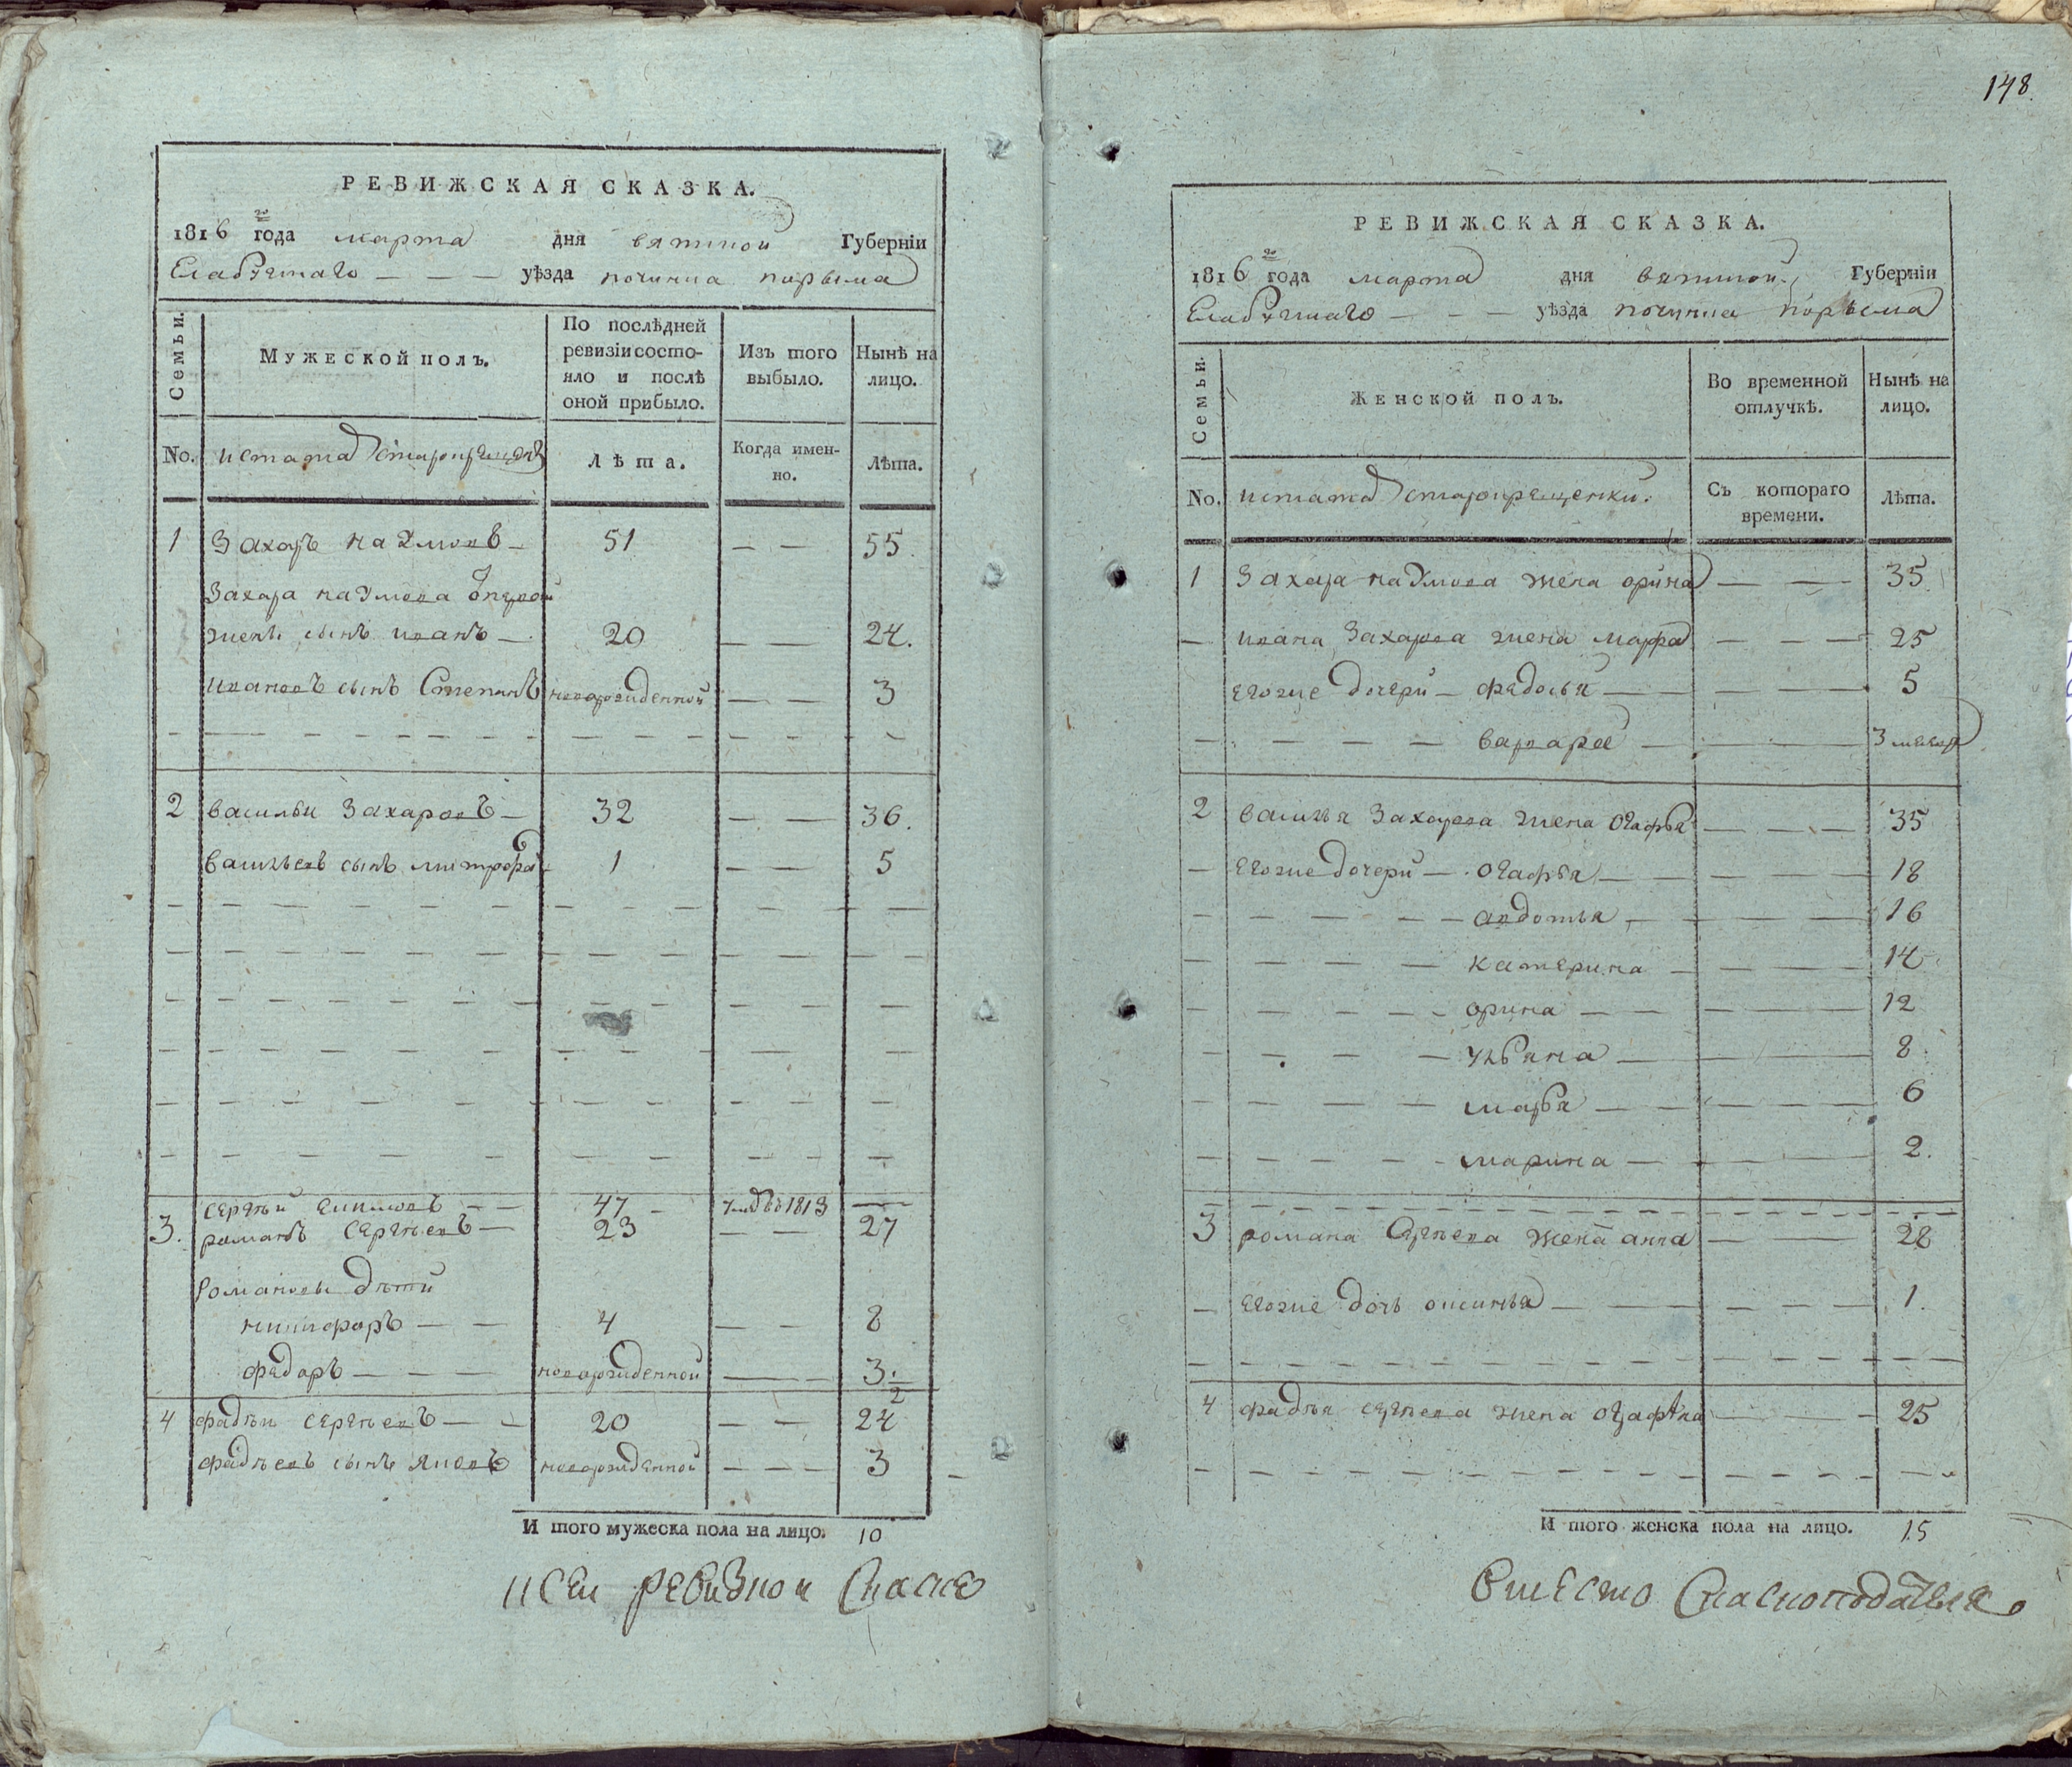 РЕВИЖСКАЯ СКАЗКА.
1816 го года марта дня вятской Губерніи
Елабужскаго — — — уѣзда починка
Семьи.
Мужеской полъ.
По послѣдней ревизіи состояло и послѣ оной прибыло.
Изъ того выбыло.
Нынѣ на лицо.
No. истатаръ старокрещенъ
Лѣта.
Когда именно.
Лѣта.
1 Захаръ Наумовъ — 51 — — 55.
Захара Наумова отпервой
жены сынъ иванъ — 20 — — 24.
ивановъ сынъ Степанъ новорожденной — — 3
2 василѣи Захаровъ — 32 — — 36.
васильевъ сынъ митрофа 1 — — 5
3. Сергѣй 47 — 1813 —
романъ Сергѣевъ — 23 — — 27
Романовы дѣти
никифоръ — — 4 — — 8
фядоръ — — — новорожденной — — 3.
2
4 фадѣи Сергѣевъ — — 20 — — 24
фадѣевъ сынъ яковъ новорожденной — — — 3
И того мужеска пола на лицо. 10
ксеи ревизкои Скаске
148.
РЕВИЖСКАЯ СКАЗКА.
1816 го года марта дня вятской Губерніи
Елабужскаго — — — уѣзда починка
Семьи.
Женской полъ.
Во временной отлучкѣ.
Нынѣ на лицо.
No. истатаръ старокрещенки.
Съ котораго времени.
Лѣта.
1 Захара Наумова жена орина — — 35
— ивана Захарова жена марфа — — — 25
егоже дочери — фядосья — — 5
— — — — варвара — — 3 месяца
2 василья Захарова жена огафья — — — 35
— егоже дочери — огафья — — — 18
— — — — авдотья — — 16
— — — — катерина — — 14
— — — — орина — — 12
— — — — ульяна — — 8
— — — — марья — — 6
— — — — марина — — 2.
3 романа Сергѣева жена анна — — 28
— егоже дочь оксинья — — 1.
4 фадѣя сергѣева жена — — 25
И того женска пола на лицо. 15
вместо Скаскоподателя